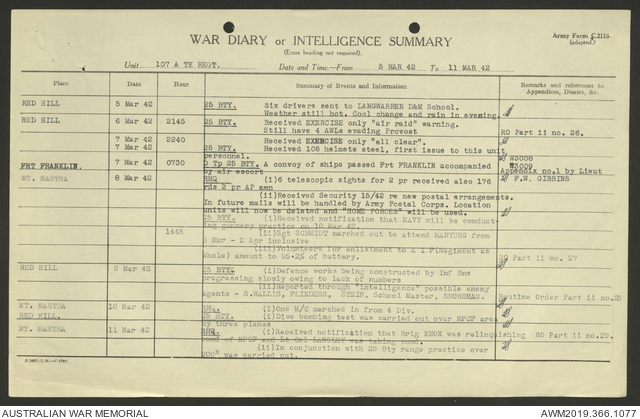 WAR DIARY or INTELLIGENCE SUMMARY
(Erase heading not required).
Army Form C.2118
(adapted.)
Unit 107 A TK REGT. Date and Time—From 5 MAR 42 To 11 MAR 42
Place Date Hour Summary of Events and Information Remarks and references to Appendices, Diaries, &c.
RED HILL 5 Mar 42 25 BTY. Six drivers sent to LANGWARREN D&M School.
Weather still hot. Cool change and rain in evening.
RED HILL 6 Mar 42 2145 25 BTY. Received EXERCISE only "air raid" warning.
Still have 4 AWLs evading Provost RO Part ii no. 26.
7 Mar 42 2240 Received EXERCISE only "all clear".
7 Mar 42 25 BTY. Received 108 helmets steel, first issue to this unit
personnel. W3008
FRT FRANKLIN. 7 Mar 42 0730 D Tp 25 BTY. A convoy of ships passed Frt FRANKLIN accompanied W3009
by air escort Appendix no.1 by Lieut
MT. MARTHA 8 Mar 42 RHQ (i)6 telescopic sights for 2 pr received also 176 F.W. GIBBINS
rds 2 pr AP amn
(ii)Received Security 15/42 re new postal arrangements.
In future mails will be handled by Army Postal Corps. Location
units will now be deleted and "HOME FORCES" will be used.
25 BTY. (i)Received notification that NAVY will be conduct-
ing gunnery practice on 10 Mar 42.
1645 (ii)Sgt SCHMIDT marched out to attend NANYUNG from
5 Mar - 2 Apr inclusive
(iii)Volunteers for enlistment to A I F(Regiment as
whole) amount to 95.2% of battery. RO Part ii no. 27
RED HILL 9 Mar 42 25 BTY. (i)Defence works being constructed by Inf Bns
progressing slowly owing to lack of numbers
(ii)Reported through "intelligence" possible enemy
agents - R.WALLIS, FLINDERS, STEIN, School Master, SHOREHAM. Routine Order Part ii no.28
MT. MARTHA 10 Mar 42 RHQ. (i)One R/O marched in from 4 Div.
RED HILL. 25 BTY. (i) Dive bombing test was carried out over MPCF area
by three planes
MT. MARTHA 11 Mar 42 RHQ. (i)Received notification that Brig KNOX was relinquishing RO Part ii no.29.
comd of MPCF and Lt Col LANGLEY was taking comd.
(ii)In conjunction with 25 Bty range practice over
was carried out.
AUSTRALIAN WAR MEMORIAL AWM2019.366.1077